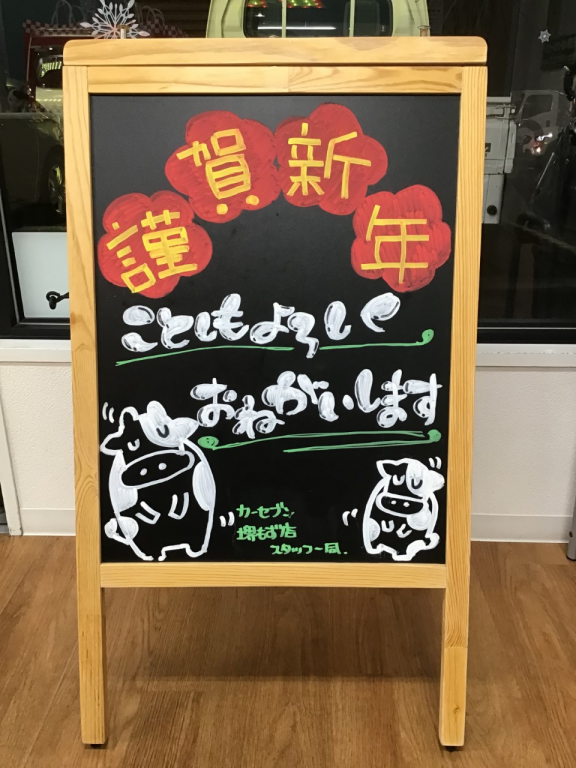 謹賀新年
ことしもよろしく
おねがいします
カーセブン
堺もず店
スタッフ一同.